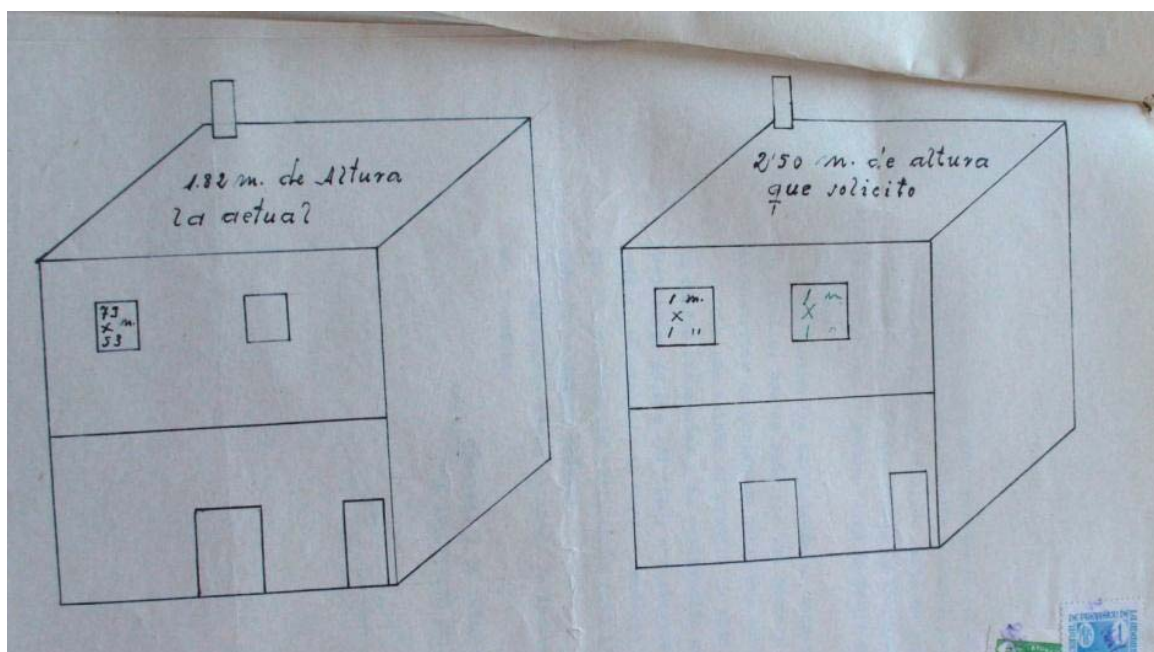 1.82 m. de Altura
la actual
73
x m.
53
2,50 m. de altura
que solicito
1 m.
X
1 "
1 m
X
1 "